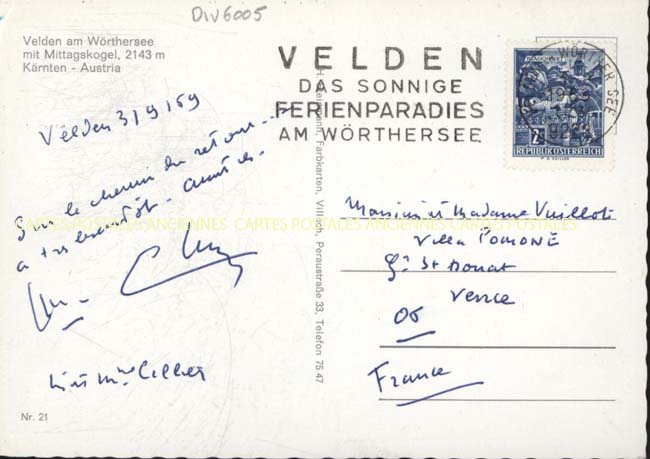 DIV6005
Velden am Wörthersee
mit Mittagskogel, 2143 m
Kärnten - Austria
VELDEN
DAS SONNIGE
FERIENPARADIES
AM WÖRTHERSEE
WÖRTHER SEE
2S
REPUBLIK ÖSTERREICH
Velden 3/9/69
Sur le chemin du retour...
a très bientôt.
Monsieur et Madame Vuillot
Villa POMONE
St Donat
Vence
06
France
Farbkarten, Villach, Peraustraße 33, Telefon 75 47
CARTES POSTALES ANCIENNES CARTES POSTALES ANCIENNES CARTES POSTALES
Nr. 21